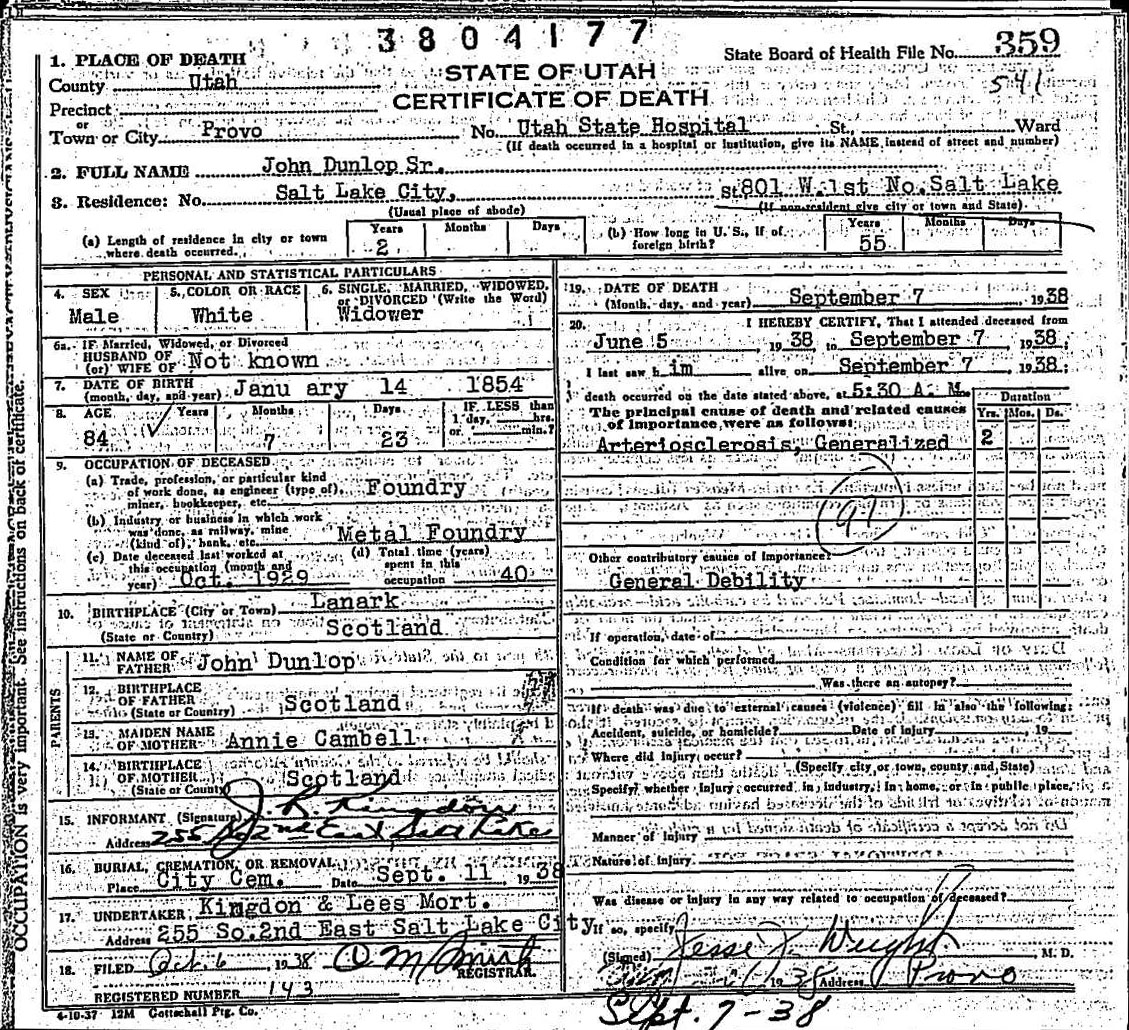 3804177
State Board of Health File No. 359
541
1. PLACE OF DEATH
County Utah
STATE OF UTAH
CERTIFICATE OF DEATH
Precinct
or
Town or City Provo No. Utah State Hospital St., Ward
(If death occurred in a hospital or institution, give its NAME instead of street and number)
2. FULL NAME John Dunlop Sr.
3. Residence: No. Salt Lake City, St 801 W.1st No.Salt Lake
(Usual place of abode) (If non-resident give city or town and State)
(a) Length of residence in city or town where death occurred. Years 2 Months Days
(b) How long in U. S., if of foreign birth? Years 55 Months Days
PERSONAL AND STATISTICAL PARTICULARS
4. SEX Male
5. COLOR OR RACE White
6. SINGLE, MARRIED, WIDOWED, or DIVORCED (Write the Word) Widower
6a. IF Married, Widowed, or Divorced
HUSBAND OF
(or) WIFE OF Not known
7. DATE OF BIRTH
(month, day, and year) Janu ary 14 1854
8. AGE Years Months Days IF LESS than
1 day, hrs.
or min.?
84 7 23
9. OCCUPATION OF DECEASED
(a) Trade, profession, or particular kind
of work done, as engineer (type of), Foundry
miner, bookkeeper, etc.
(b) Industry or business in which work
was done, as railway, mine
(kind of), bank, etc. Metal Foundry
(c) Date deceased last worked at
this occupation (month and
year) Oct. 1929
(d) Total time (years)
spent in this
occupation 40
10. BIRTHPLACE (City or Town) Lanark
(State or Country) Scotland
PARENTS
11. NAME OF
FATHER John Dunlop
12. BIRTHPLACE
OF FATHER
(State or Country) Scotland
13. MAIDEN NAME
OF MOTHER Annie Cambell
14. BIRTHPLACE
OF MOTHER
(State or Country) Scotland
15. INFORMANT (Signature) J. R. Kingdon
Address 255 So 2nd East Salt Lake
16. BURIAL, CREMATION, OR REMOVAL
Place City Cem. Date Sept. 11, 1938
17. UNDERTAKER, Kingdon & Lees Mort.
Address 255 So.2nd East Salt Lake City
18. FILED Oct. 6 1938 O M Smith
REGISTRAR.
REGISTERED NUMBER 143
4-10-37 12M Gottschall Ptg. Co.
OCCUPATION is very important. See instructions on back of certificate.
19. DATE OF DEATH
(Month, day, and year) September 7 1938
20. I HEREBY CERTIFY, That I attended deceased from
June 5 1938 to September 7 1938;
I last saw h im alive on September 7, 1938;
death occurred on the date stated above, at 5:30 A. M.
The principal cause of death and related causes
of importance were as follows:
Duration
Yrs. Mos. Ds.
Arteriosclerosis, Generalized 2
97
Other contributory causes of importance:
General Debility
If operation, date of
Condition for which performed
Was there an autopsy?
If death was due to external causes (violence) fill in also the following:
Accident, suicide, or homicide? Date of injury, 19
Where did injury occur?
(Specify city or town, county and State)
Specify whether injury occurred in industry, in home, or in public place.
Manner of injury
Nature of injury
Was disease or injury in any way related to occupation of deceased?
If so, specify
(Signed) Jesse J. Weight M. D.
1938 Address Provo
Sept. 7-38